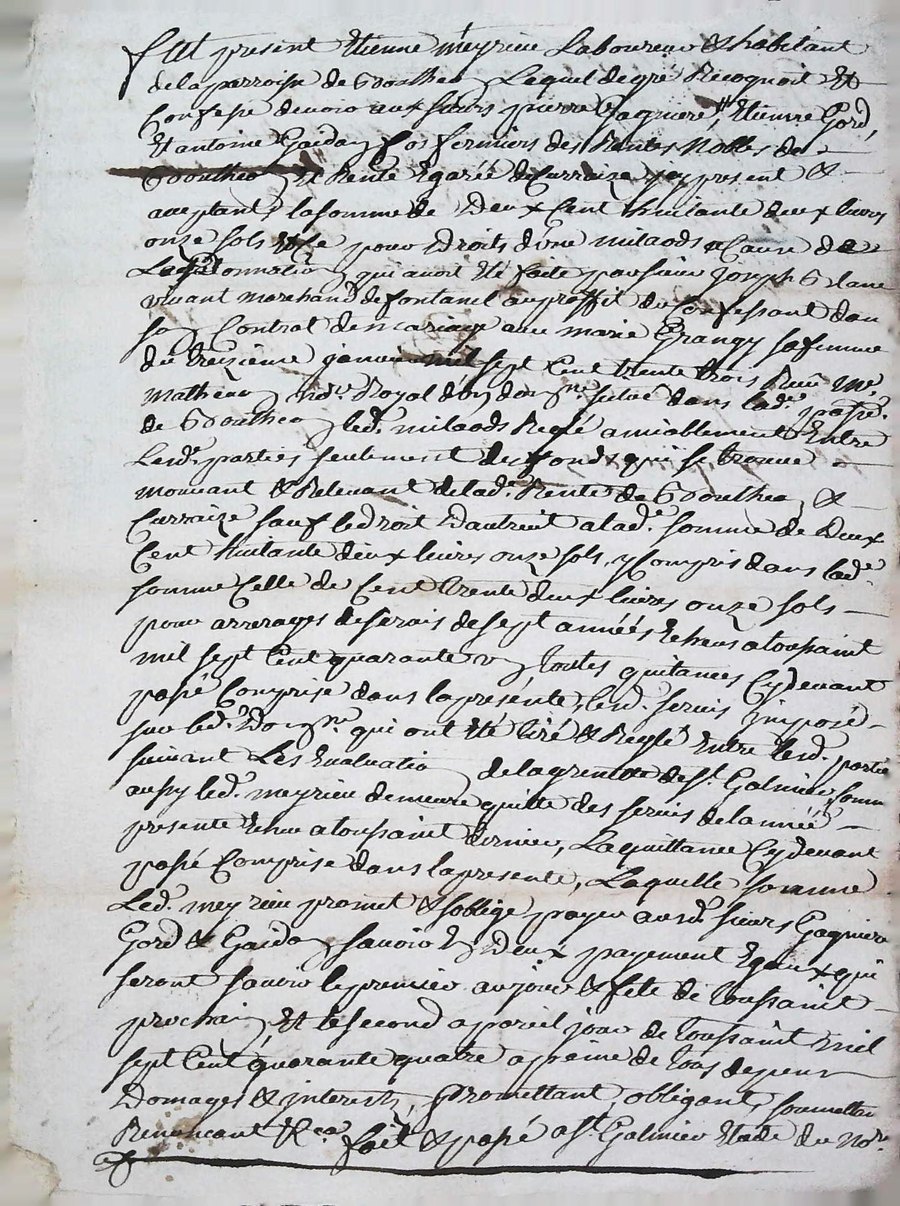 fut present Etienne meyrieu Laboureur & habitant
de la parroisse de Bouthéon Lequel de gré Recognoit Et
Confesse devoir aux sieurs pierre Gagniere, Etienne Gord,
Et antoine Gaidon, Cos fermiers des Rentes Nobles de
Bouthéon Et Rente Egarée de Curraize y present &
acceptants la somme de Deux Cent huitante deux livres
onze sols pour droits de my milaods a Cause de
La donnation qui avoit été faite par sieur Joseph
vivant marchand de fontanel au proffit du Confessant dans
son Contrat de mariage avec marie Grangy sa femme
du treizieme janvier mil sept Cent trente trois Reçu Me
mathevon no.re Royal du dom.ne situé dans lad.e passe
de Bouthéon led. milaods Reglé amiablement Entre
Lesd. parties seulement des fonds qui se trouve
mouvant & Relevant de lad.e Rente de Bouthéon &
Curraize sauf le droit d'autruit a lad.e somme de Deux
Cent huitante deux livres onze sols, y Compris dans lad.e
somme Celle de Cent trente deux livres onze sols
pour arrerages de servis de sept années Echeus a toussaint
mil sept Cent quarante un toutes quitances Cy devant
passé Comprise dans la presente, lesd. servis imposé
sur led. Dom.ne qui ont été tiré & Reglé Entre lesd. partie
suivant Les Evaluation de la grenette de St. Galmier
aussy led. meyrieu demeure quitte des servis de la année
presente Echeu a toussaint dernier, La quittance Cy devant
passé Comprise dans la presente, Laquelle somme
Led. meyrieu promet & soblige payer ausd. sieurs Gagniere
Gord & Gaidon savoir En Deux payement Egaux qui
seront savoir le premier au jour & fete de toussaint
prochain, Et le second a pareil jour de toussaint mil
sept Cent quarante quatre a peine de tous depens
Domages & interests, promettant, obligant, soumettan
Renonçant &.ca fait & passé a St. Galmier Etude du no.re